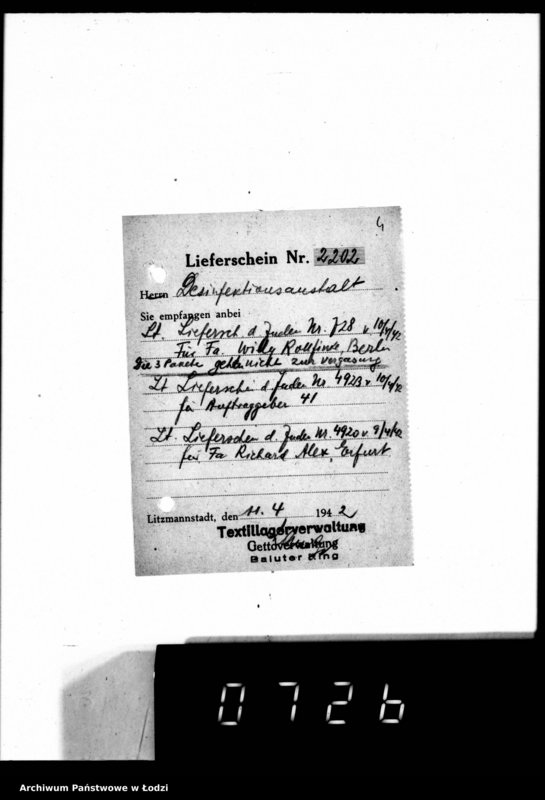 4
Lieferschein Nr. 2202
Herrn Desinfektionsanstalt
Sie empfangen anbei
Lt. Liefersch. d. Juden Nr. 728 v. 10/4/42
Für Fa. Willy Berlin
Die 3 Pakete gehen nicht zur Vergasung
Lt. Lieferschei d. Juden Nr. 4923 v. 10/4/42
für Auftraggeber 41
Lt. Lieferschen d. Juden Nr. 4920 v. 9/4/42
für Fa Richard Alex, Erfurt
Litzmannstadt, den 11. 4 1942
Textillagerverwaltung
Gettoverwaltung
Baluter Ring
0726
Archiwum Państwowe w Łodzi